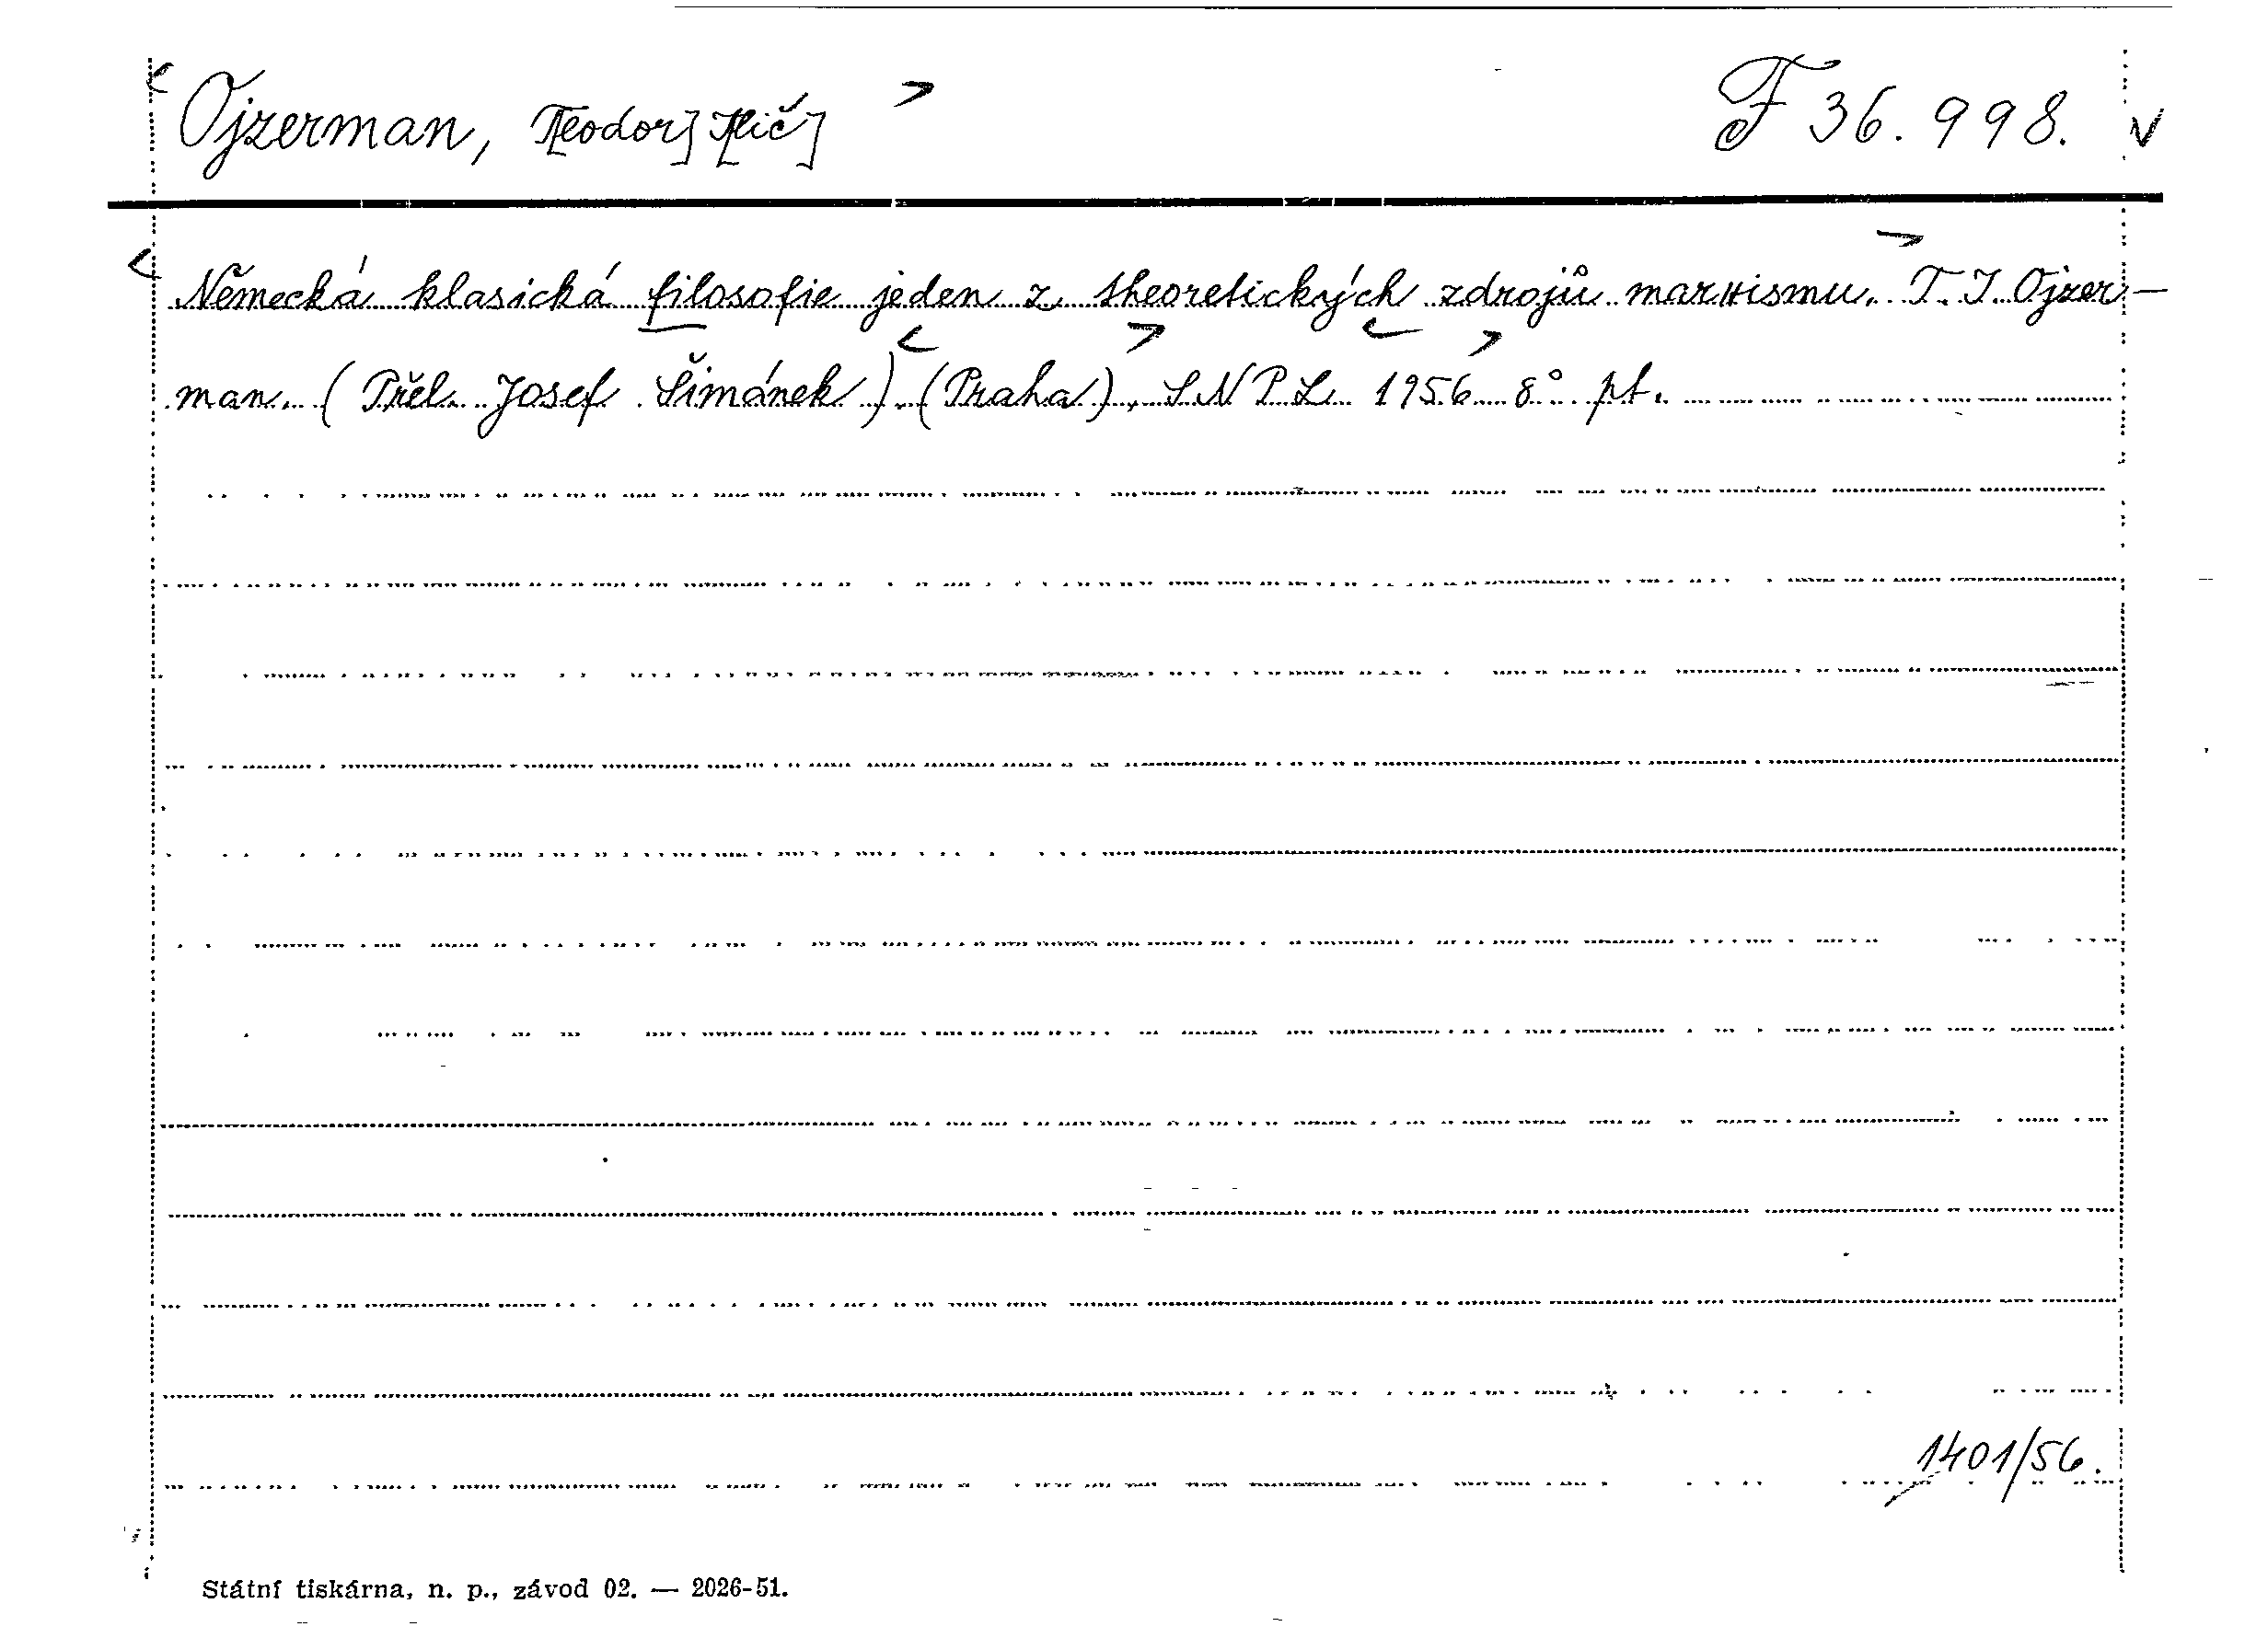 Ojzerman, T[eodor] I[lič] F 36.998. v
Německá klasická filosofie jeden z theoretických zdrojů marxismu. T. I. Ojzer-
man. (Přel. Josef Šimánek). (Praha), SNPL 1956 8° pt.
1401/56.
Státní tiskárna, n. p., závod 02. — 2026-51.